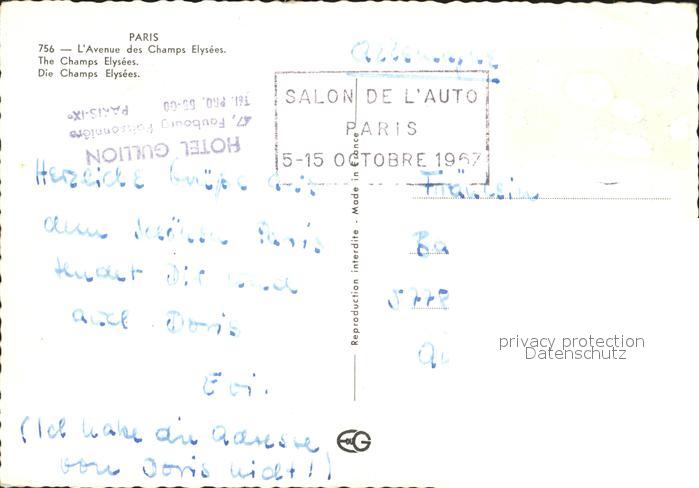 PARIS
756 — L'Avenue des Champs Elysées.
The Champs Elysées.
Die Champs Elysées.
HOTEL GULLION
47, Faubourg Poissonnière
PARIS-IXe
Tél. PRO. 55-60
Allemagne
SALON DE L'AUTO
PARIS
5-15 OCTOBRE 1967
Herzliche Grüße aus
dem schönen Paris
sendet Dir und
auch Doris
Evi.
(Ich habe die Adresse
von Doris nicht!)
Reproduction interdite - Made in France
Fräulein
Ba
5778
privacy protection
Datenschutz